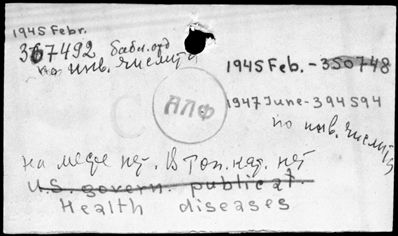 1945 Febr.
367492 библ. отд
по инв. числится
1945 Feb. - 350748
АПФ
1947 June - 394594
по инв. числится
на месте нет. В Топ. кат. нет
U.S. govern. publicat.
Health diseases